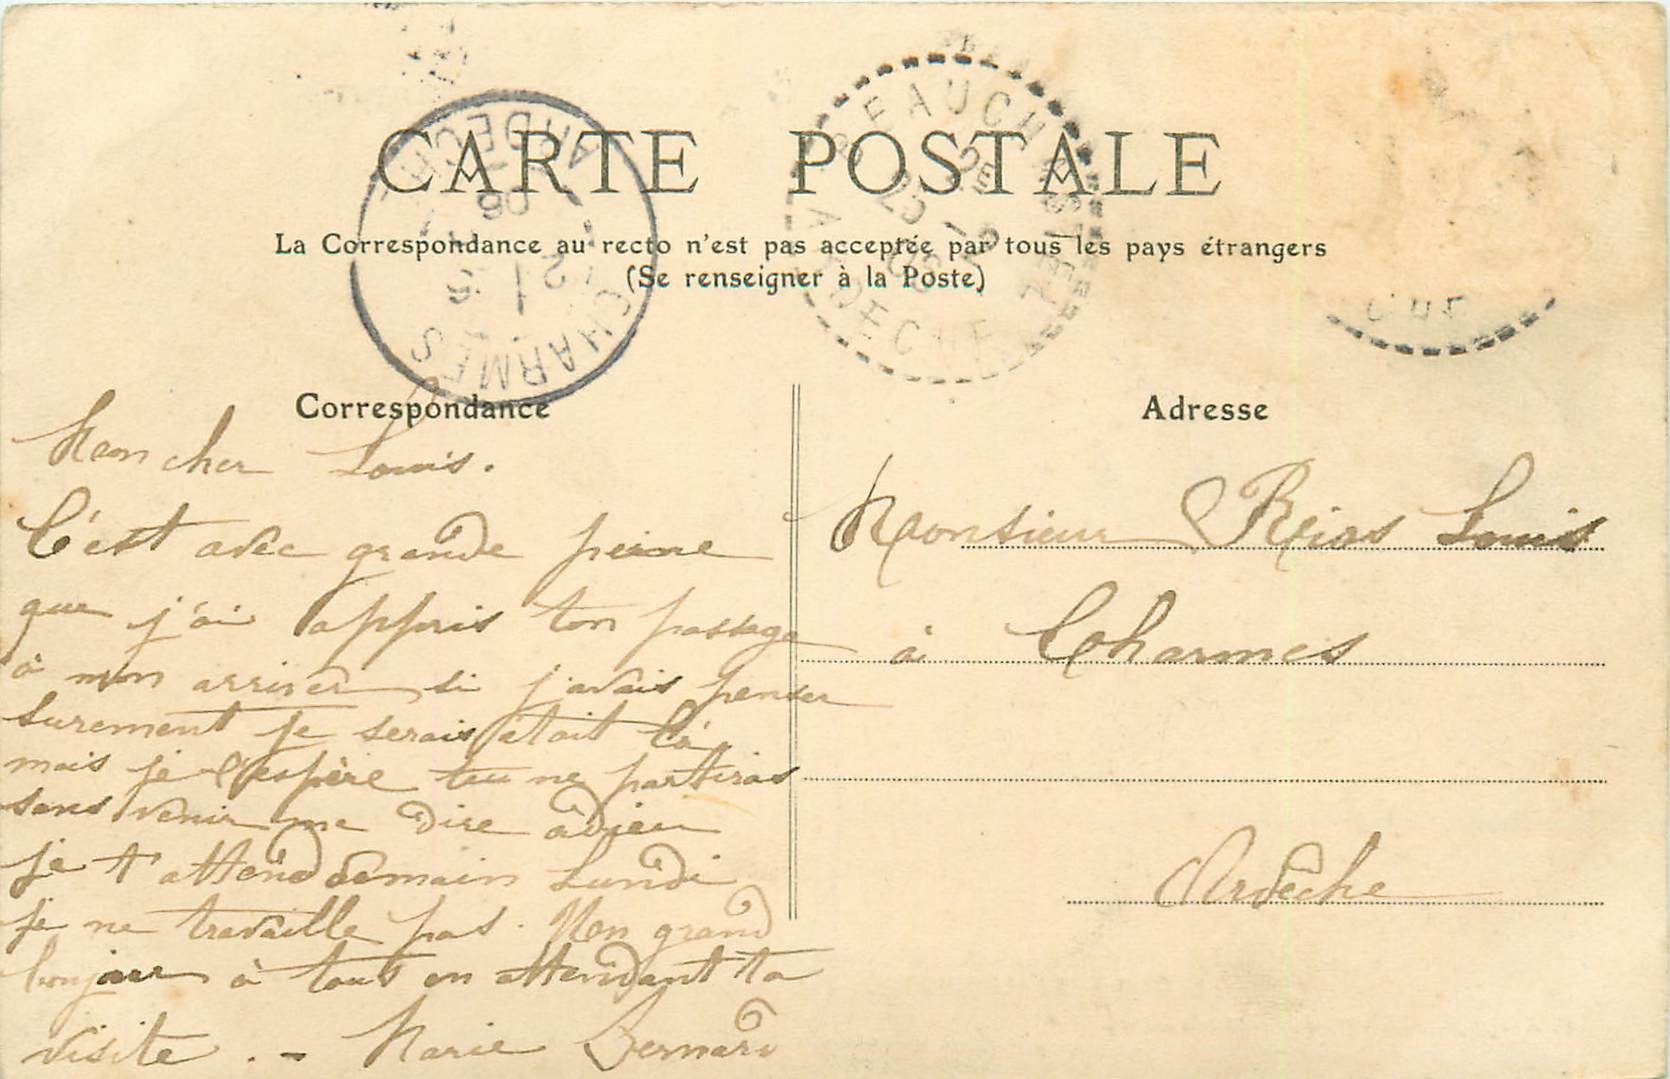 CARTE POSTALE
La Correspondance au recto n'est pas acceptée par tous les pays étrangers
(Se renseigner à la Poste)
BEAUCHASTEL
ARDECHE
CHARMES
ARDECHE
Correspondance
Mon cher Louis.
C'est avec grande peine
que j'ai appris ton passage
à mon arriver si j'avais penser
surement je serais était là
mais je l'espère tu ne partiras
sans venir me dire adieu
je t'attend demain Lundi
je ne travaille pas. Mon grand
bonjour à tous en attendant ta
visite. - Marie Bernard
Adresse
Monsieur Reias Louis
à Charmes
Ardèche